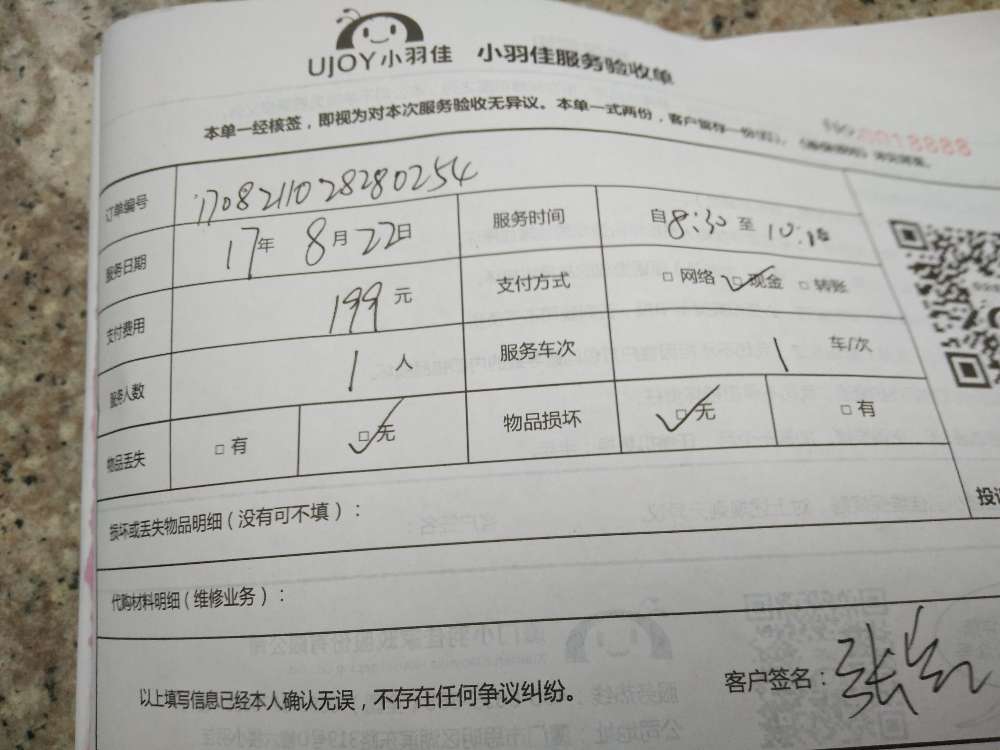 UJOY小羽佳 小羽佳服务验收单
本单一经核签，即视为对本次服务验收无异议。本单一式两份，客户留存一份
订单编号 1708211028280254
服务日期 17年 8月 22日 服务时间 自8:30 至 10:10
支付费用 199 元 支付方式 □ 网络 □ 现金 □ 转账
服务人数 1 人 服务车次 1 车/次
物品丢失 □ 有 □ 无 物品损坏 □ 无 □ 有
损坏或丢失物品明细（没有可不填）：
代购材料明细（维修业务）：
以上填写信息已经本人确认无误，不存在任何争议纠纷。
客户签名：张